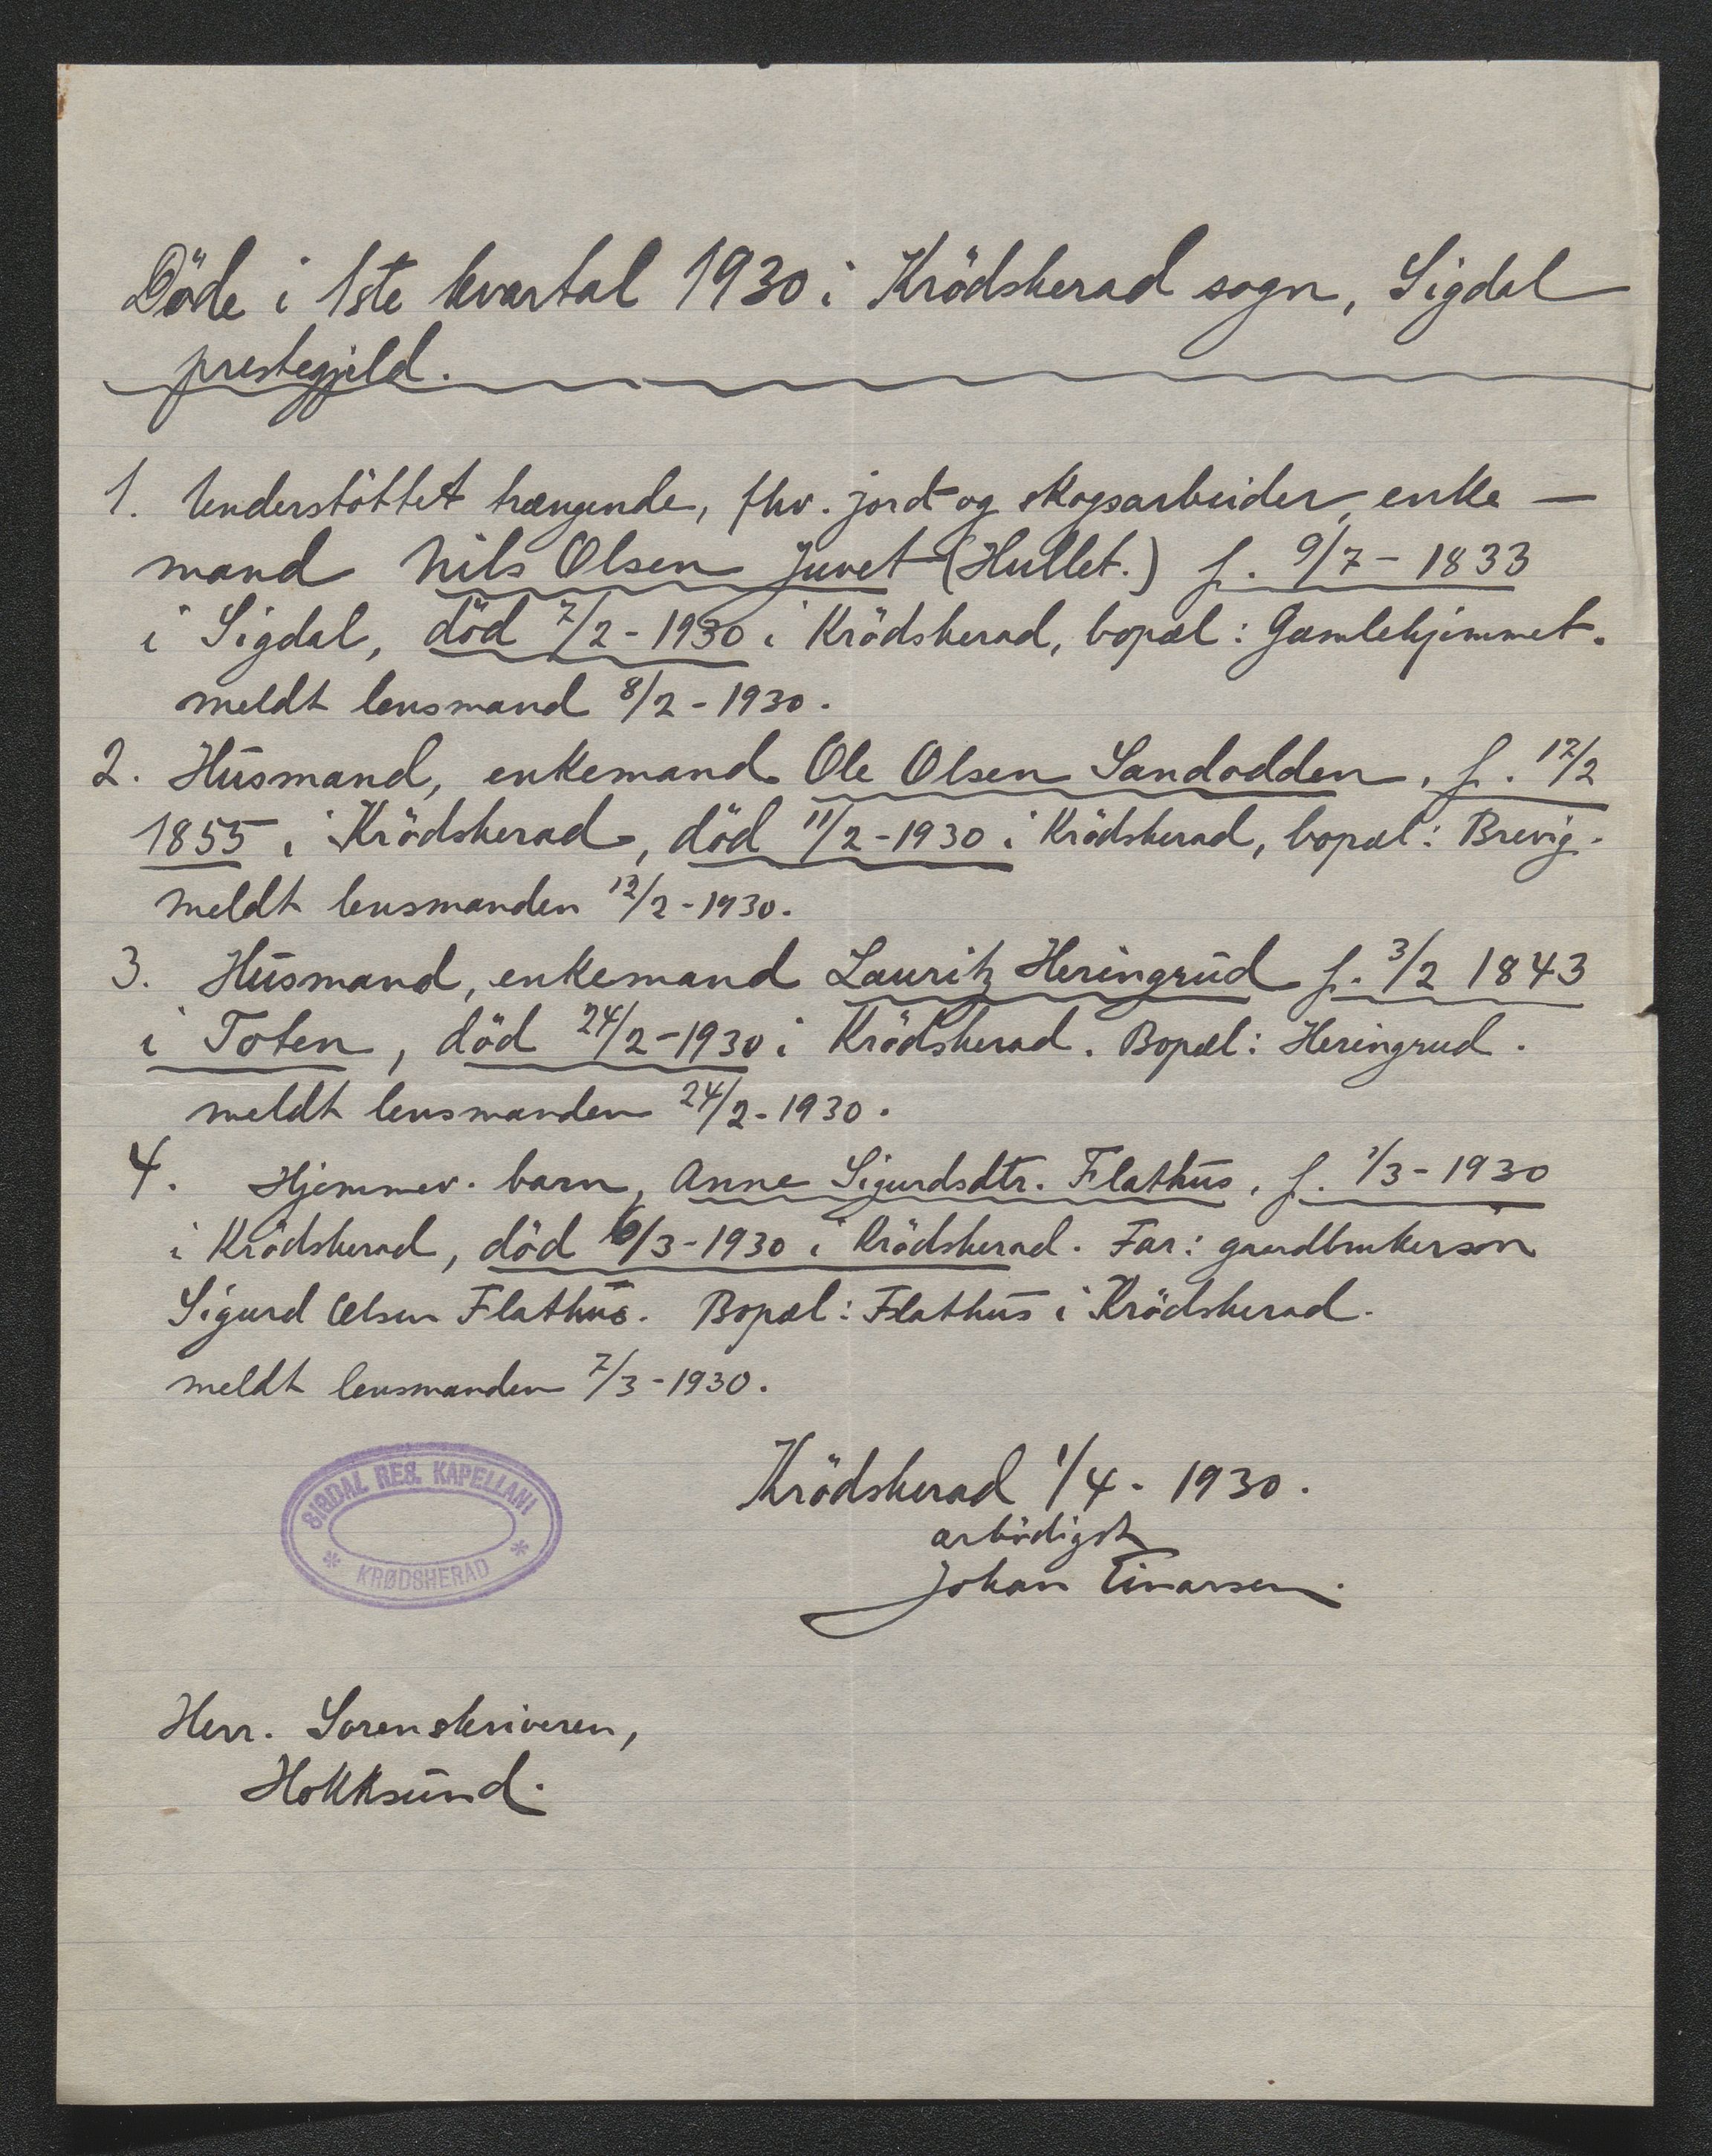 Döde i 1ste kvartal 1930 i Krödsherad sogn, Sigdal
prestegjeld.
1. Understöttet trængende, fhv. jord- og skogsarbeider, enke-
mand Nils Olsen Juvet (Hullet.) f. 9/7 - 1833
i Sigdal, död 7/2 - 1930 i Krödsherad, bopæl: Gamlehjemmet.
meldt lensmand 8/2 - 1930.
2. Husmand, enkemand Ole Olsen Sandodden, f. 12/2
1855 i Krödsherad, död 11/2 - 1930 i Krödsherad, bopæl: Brevig.
meldt lensmanden 12/2 - 1930.
3. Husmand, enkemand Lauritz Heringrud f. 3/2 1843
i Toten, död 24/2 - 1930 i Krödsherad. Bopæl: Heringrud.
meldt lensmanden 24/2 - 1930.
4. Hjemmev. barn, Anne Sigurdsdtr. Flathus, f. 1/3 - 1930
i Krödsherad, död 6/3 - 1930 i Krödsherad. Far: gaardbrukersön
Sigurd Olsen Flathus. Bopæl: Flathus i Krödsherad.
meldt lensmanden 7/3 - 1930.
SIGDAL RES. KAPELLANI
* KRØDSHERAD *
Krödsherad 1/4 - 1930.
arbödigst
Johan Einarsen.
Herr. Sorenskriveren,
Hokksund.